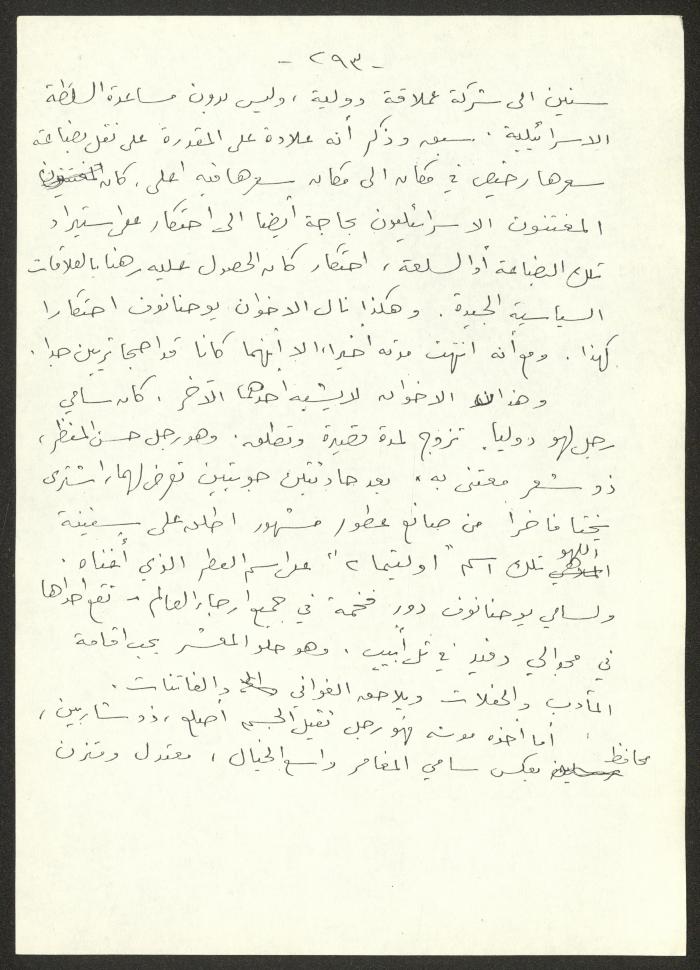 - ٢٩٣ -
سنين الى شركة عملاقة دولية ، وليس بدون مساعدة السلطة
الاسرائيلية . سبق وذكر أنه علاوة على المقدرة على نقل بضاعة
سعرها رخيص في مكان الى مكان سعرها فيه اعلى ، كان
المغتنون الاسرائيليون بحاجة أيضا الى احتكار على استيراد
تلك البضاعة أو السلعة ، احتكار كان الحصول عليه رهنا بالعلاقات
السياسية الجيدة . وهكذا نال الاخوان يوحنانوف احتكارا
كهذا . ومع أنه انتهت مدته اخيرا، الا أنهما كانا قد اصبحا ثريين جدا .
وهذان الاخوان لا يشبه احدهما الآخر . كان سامي
رجل لهو دوليا. تزوج لمدة قصيرة وتطلق . وهو رجل حسن المنظر ،
ذو شعر معتنى به . بعد حادثتين جويتين تعرض لهما، اشترى
يختا فاخرا من صانع عطور مشهور اطلق على سفينة
اللهو تلك اسم "اولتيما ٢" على اسم العطر الذي أغناه .
ولسامي يوحنانوف دور فخمة في جميع ارجاء العالم - تقع احداها
في حوالي دفيد في تل أبيب . وهو حلو المعشر يحب اقامة
المآدب والحفلات ويلاحق الغواني والفاتنات .
أما أخوه موشه فهو رجل ثقيل الجسم أصلع ، ذو شاربين ،
محافظ بعكس سامي المغامر واسع الخيال ، معتدل ومتزن